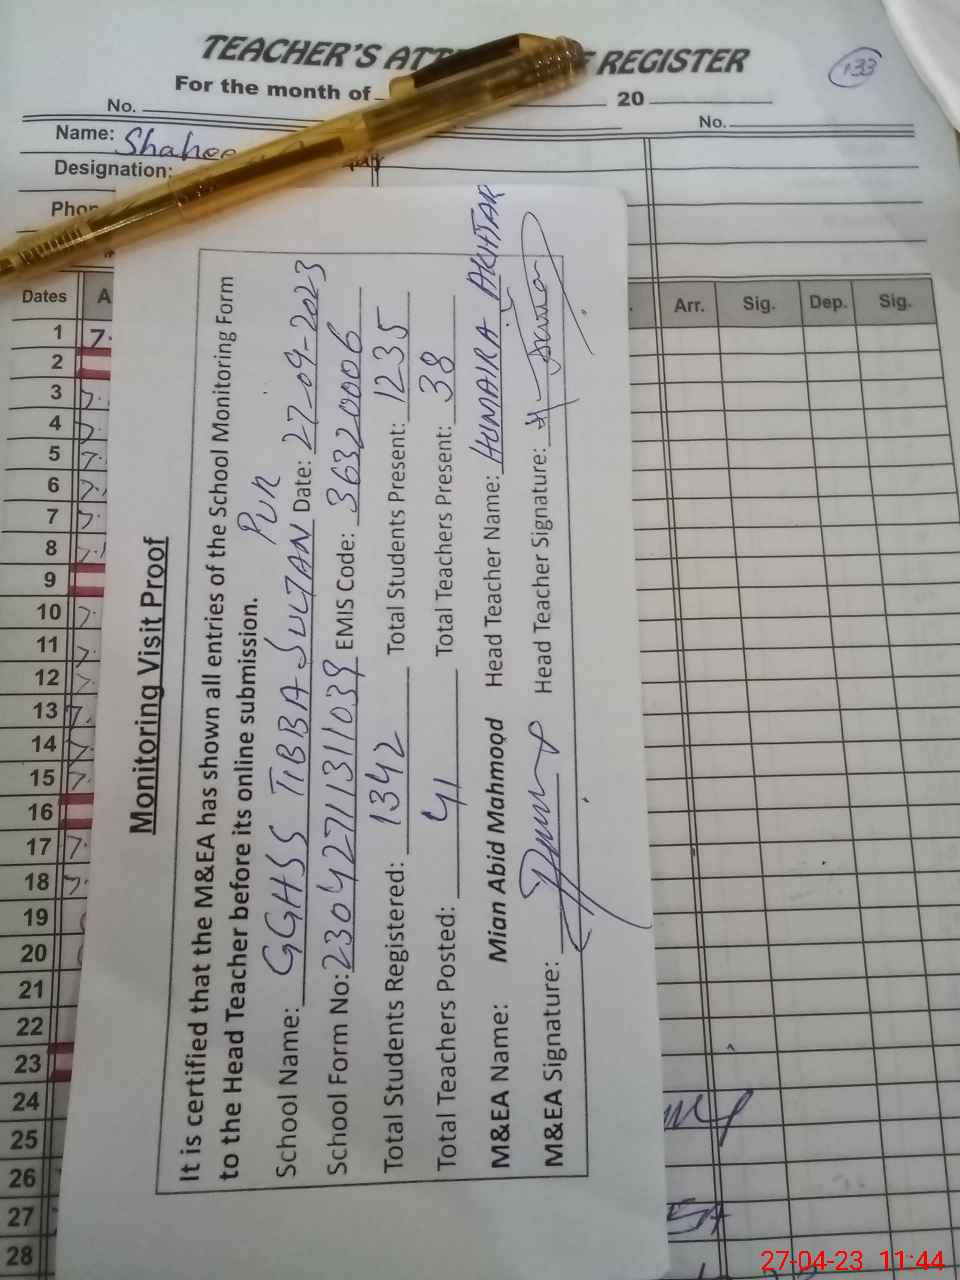 TEACHER'S REGISTER
For the month of 20
No. No.
133
Name:
Designation:
Dates Arr. Sig. Dep. Sig.
1 7.
2
3 7.
4 7.
5 7.
6 7.
7 7.
8 7.
9
10 7.
11 7.
12 7.
13 7.
14 7.
15 7.
16
17 7.
18 7.
19
20
21
22
23
24
25
26
27
28
Monitoring Visit Proof
It is certified that the M&EA has shown all entries of the School Monitoring Form
to the Head Teacher before its online submission.
School Name: GGHSS TIBBA SULTAN PUR Date: 27-04-2023
School Form No: 23042711311039 EMIS Code: 36320006
Total Students Registered: 1342 Total Students Present: 1235
Total Teachers Posted: 41 Total Teachers Present: 38
M&EA Name: Mian Abid Mahmood Head Teacher Name: HUMAIRA AKHTAR
M&EA Signature: Head Teacher Signature:
27-04-23 11:44